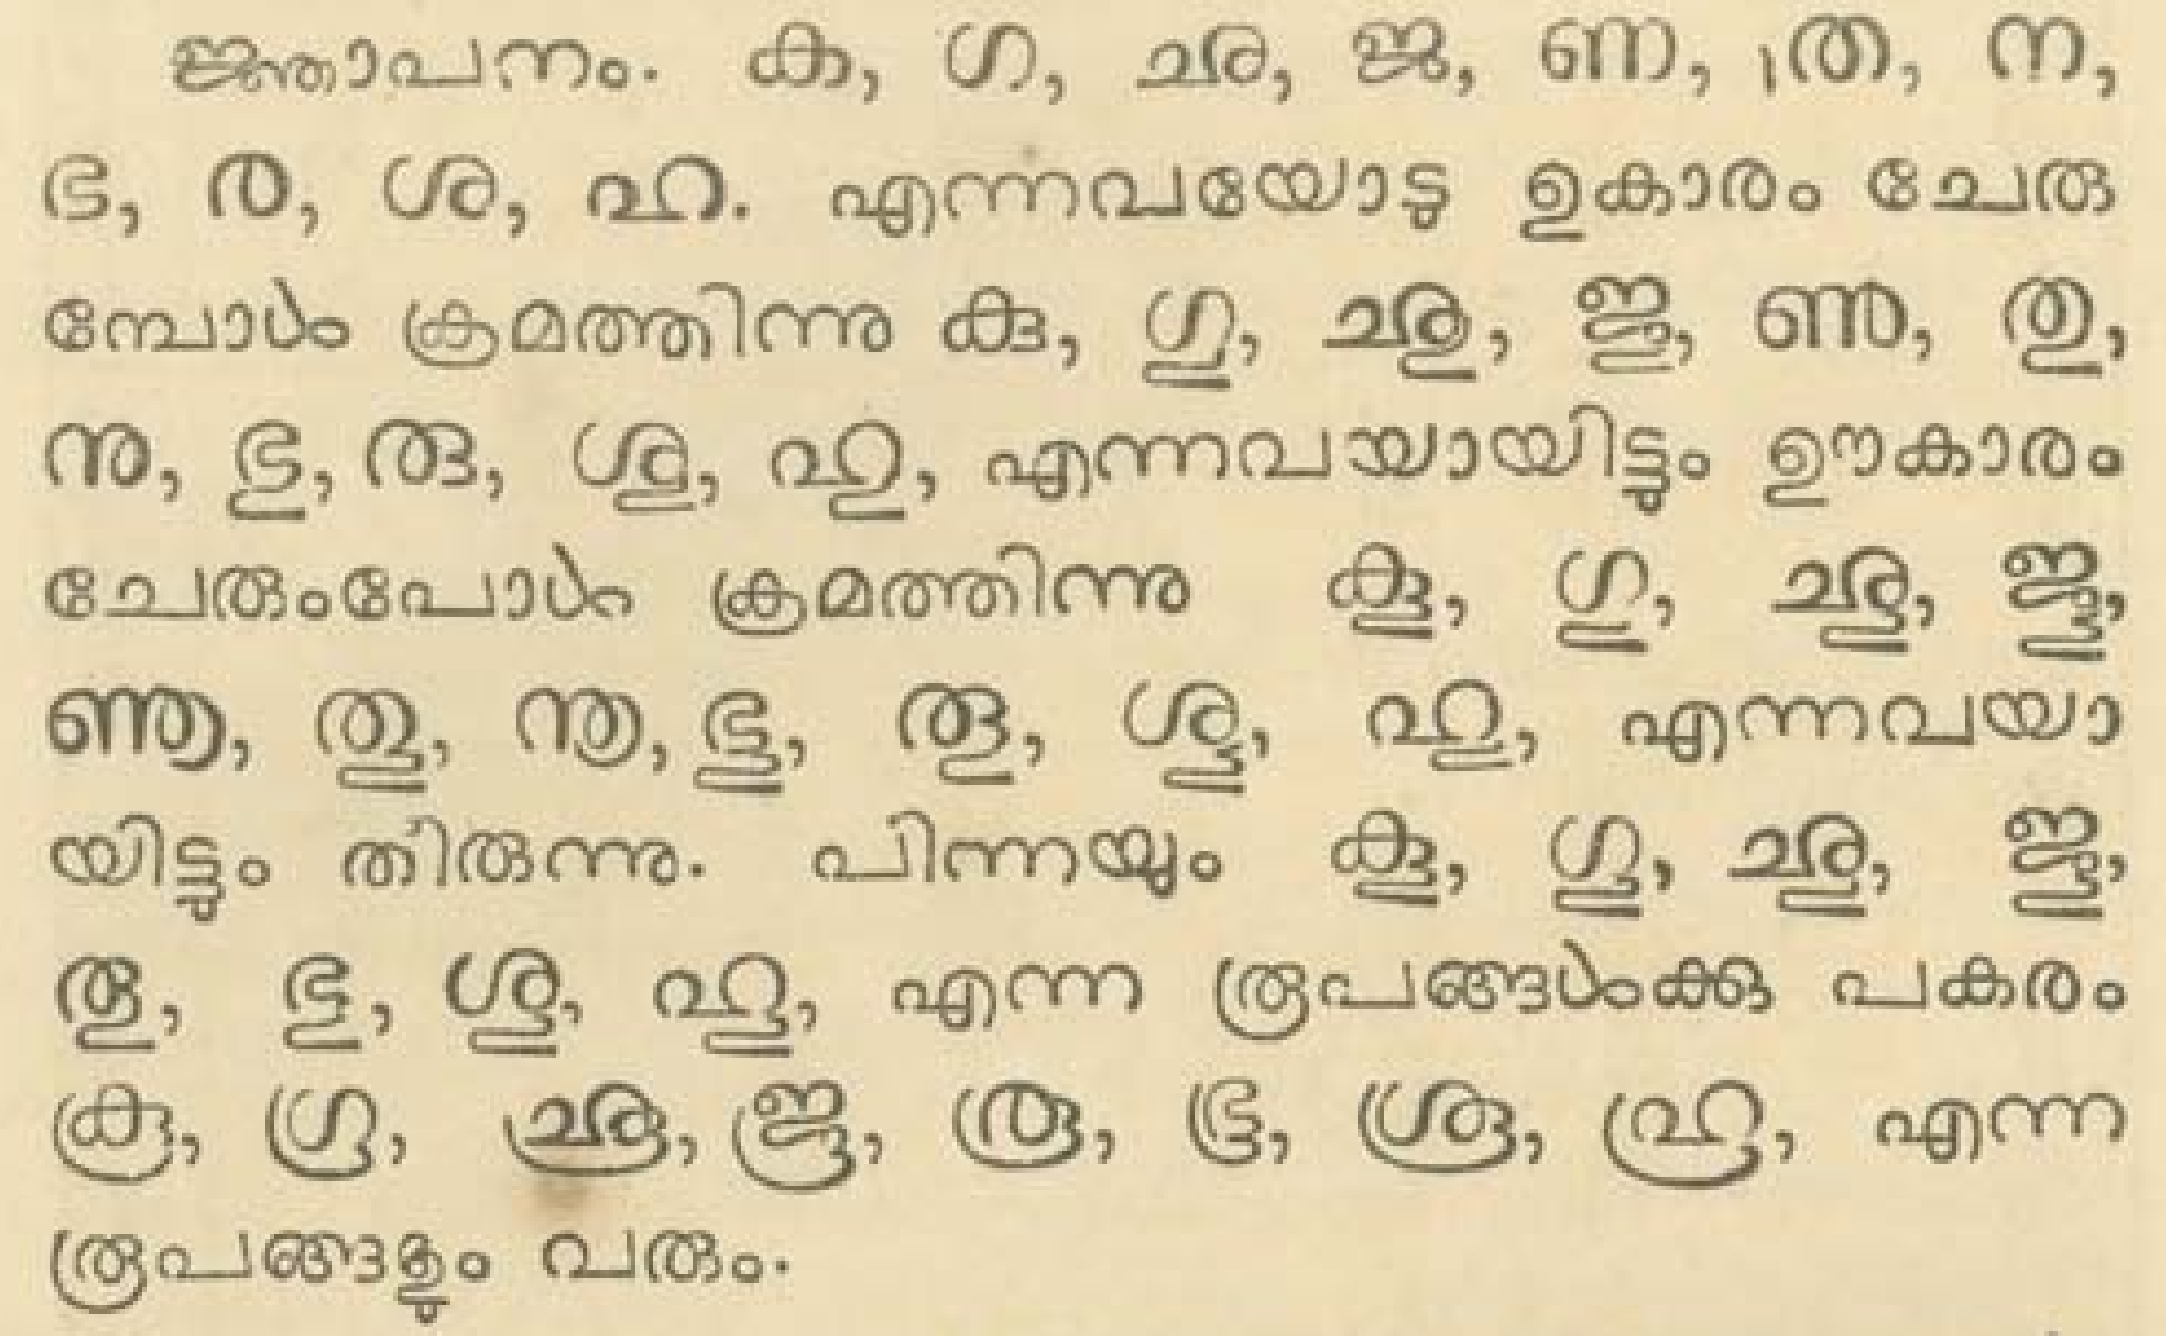 ജ്ഞാപനം. ക, ഗ, ഛ, ജ, ണ, ത, ന,
ഭ, ര, ശ, ഹ. എന്നവയോടു ഉകാരം ചേരു
മ്പോൾ ക്രമത്തിന്നു കു, ഗു, ഛു, ജു, ണു, തു,
നു, ഭു, രു, ശു, ഹു, എന്നവയായിട്ടും ഊകാരം
ചേരുംപോൾ ക്രമത്തിന്നു കൂ, ഗൂ, ഛൂ, ജൂ,
ണൂ, തൂ, നൂ, ഭൂ, രൂ, ശൂ, ഹൂ, എന്നവയാ
യിട്ടും തിരുന്നു. പിന്നയും കൂ, ഗൂ, ഛൂ, ജൂ,
തൂ, ഭൂ, ശൂ, ഹൂ, എന്ന രൂപങ്ങൾക്കു പകരം
കൂ, ഗൂ, ഛൂ, ജൂ, തൂ, ഭൂ, ശൂ, ഹൂ, എന്ന
രൂപങ്ങളും വരും.